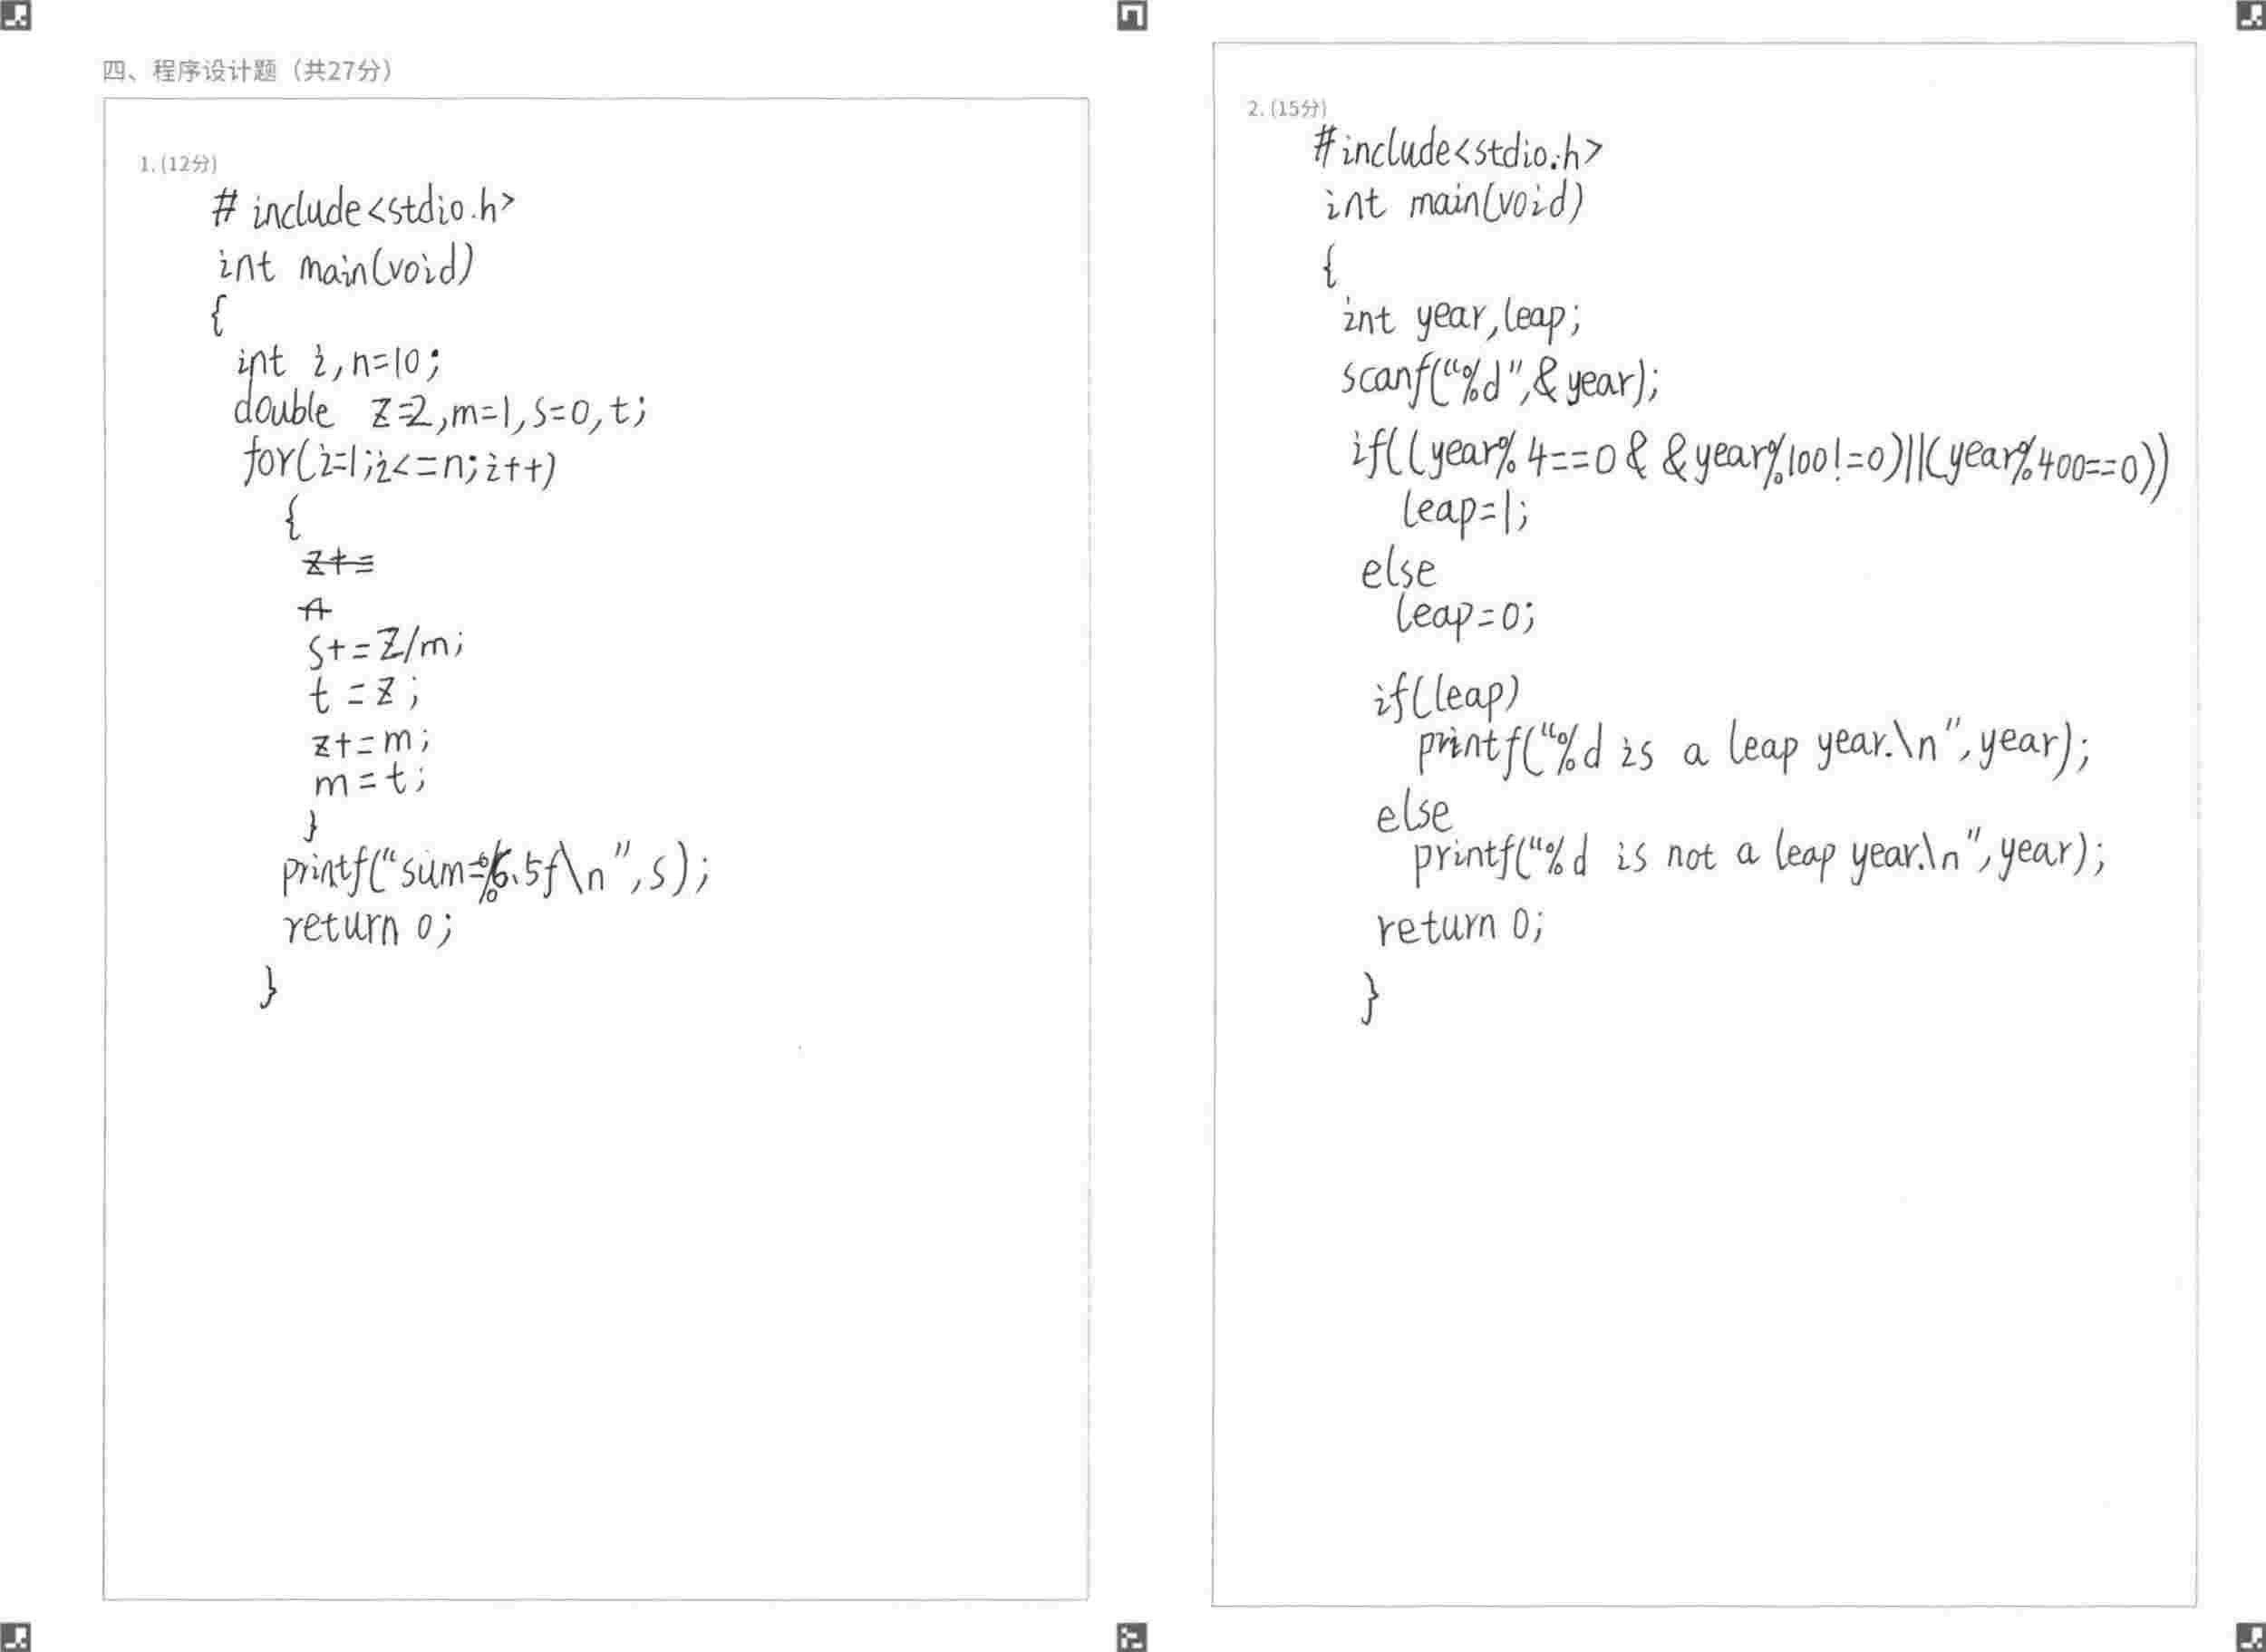 四、程序设计题（共27分）
1. (12分)
# include<stdio.h>
int main(void)
{
int i,n=10;
double z=2,m=1,s=0,t;
for(i=1;i<=n;i++)
{
z+=
s+=z/m;
t=z;
z+=m;
m=t;
}
printf("sum=%6.5f\n",s);
return 0;
}
2. (15分)
#include<stdio.h>
int main(void)
{
int year,leap;
scanf("%d",&year);
if((year%4==0& &year%100!=0)||(year%400==0))
leap=1;
else
leap=0;
if(leap)
printf("%d is a leap year.\n",year);
else
printf("%d is not a leap year.\n",year);
return 0;
}